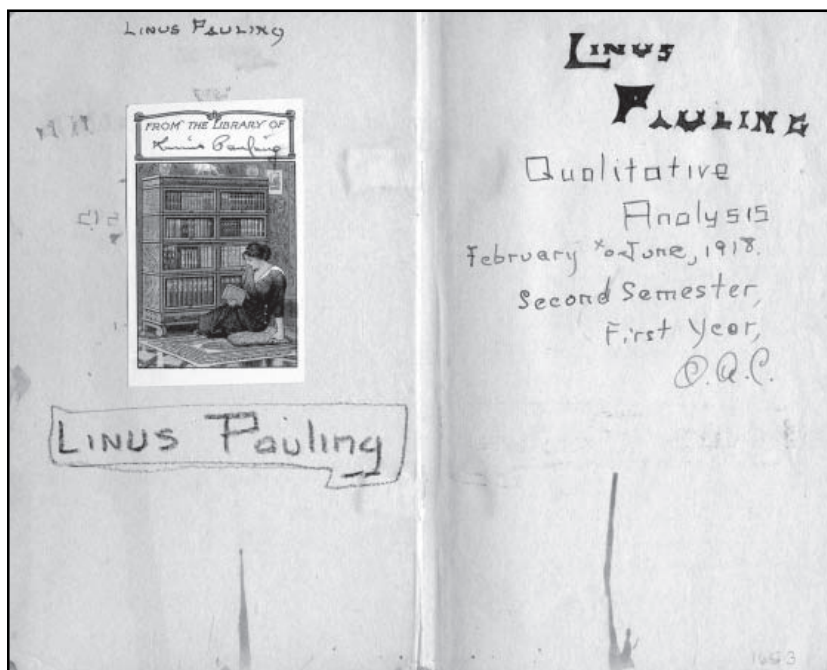 LINUS PAULING
FROM THE LIBRARY OF
Linus Pauling
LINUS Pauling
LINUS
PAULING
Qualitative
Analysis
February to June, 1918.
Second Semester,
First Year,
O.A.C.
1653